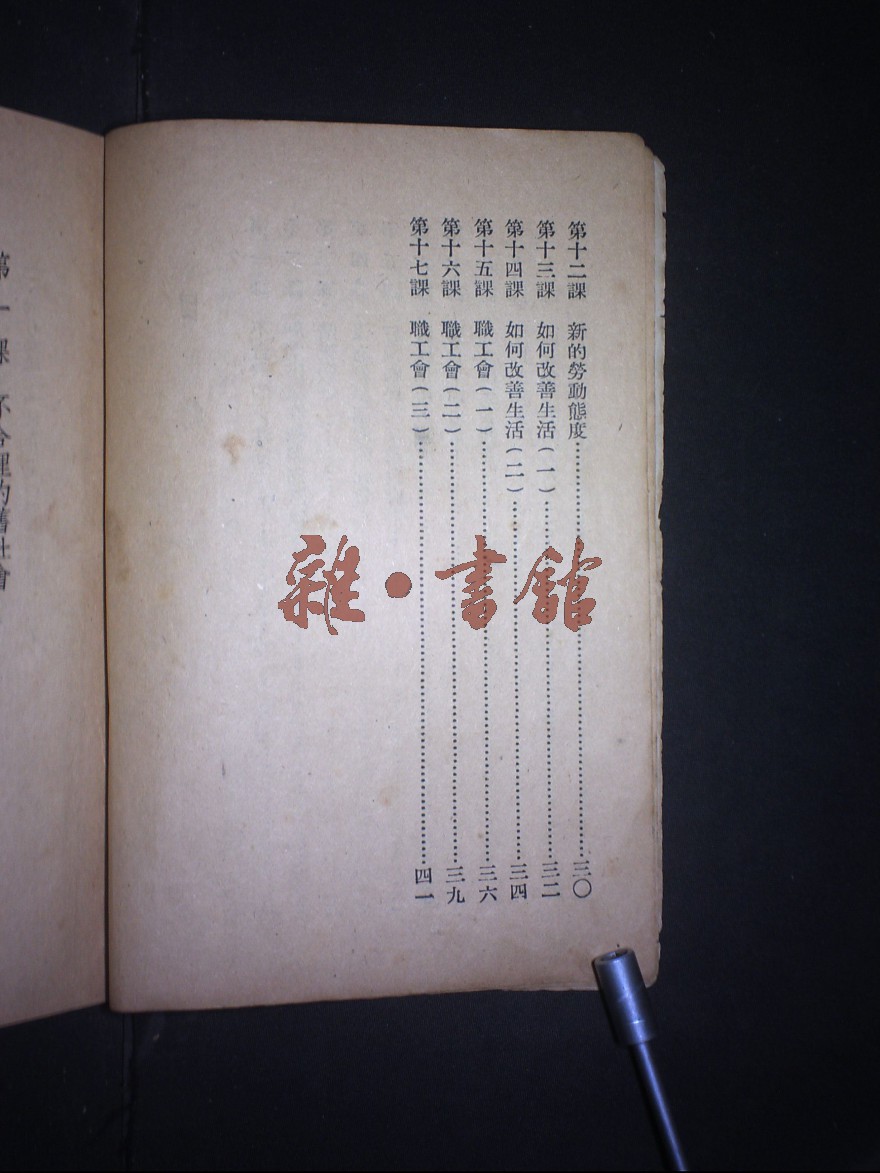 第十二課　新的勞動態度……三〇
第十三課　如何改善生活（一）……三二
第十四課　如何改善生活（二）……三四
第十五課　職工會（一）……三六
第十六課　職工會（二）……三九
第十七課　職工會（三）……四一
第一課　不合理的舊社會
雜·書館